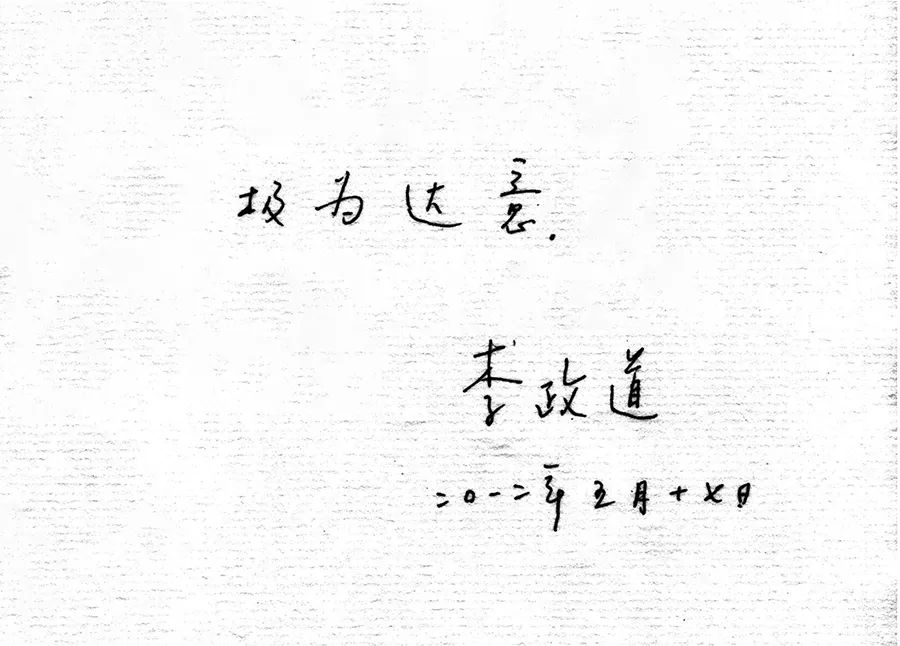 极为达意.
李政道
二〇一二年五月十七日